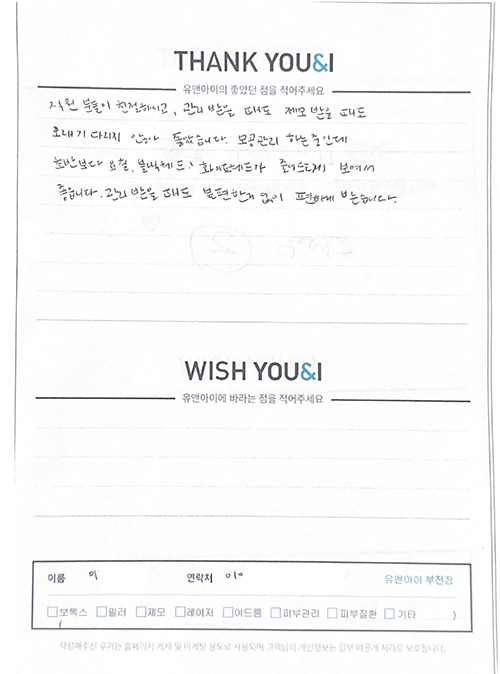 THANK YOU&I
유앤아이의 좋았던 점을 적어주세요
직원 분들이 친절하시고, 관리 받을 때도 제모 받을 때도
오래 기다리지 않아 좋았습니다. 모공관리 하는 중인데
초반보다 요철, 블랙헤드, 화이트헤드가 줄어든게 보여서
좋습니다. 관리 받을 때도 불편한거 없이 편하게 받습니다.
WISH YOU&I
유앤아이에 바라는 점을 적어주세요
이름 이 연락처 010 유앤아이 부천점
보톡스 필러 제모 레이저 여드름 피부관리 피부질환 기타
( )
작성해주신 후기는 홈페이지 게재 및 마케팅 용도로 사용되며 고객님의 개인정보는 일부 비공개 처리로 보호됩니다.